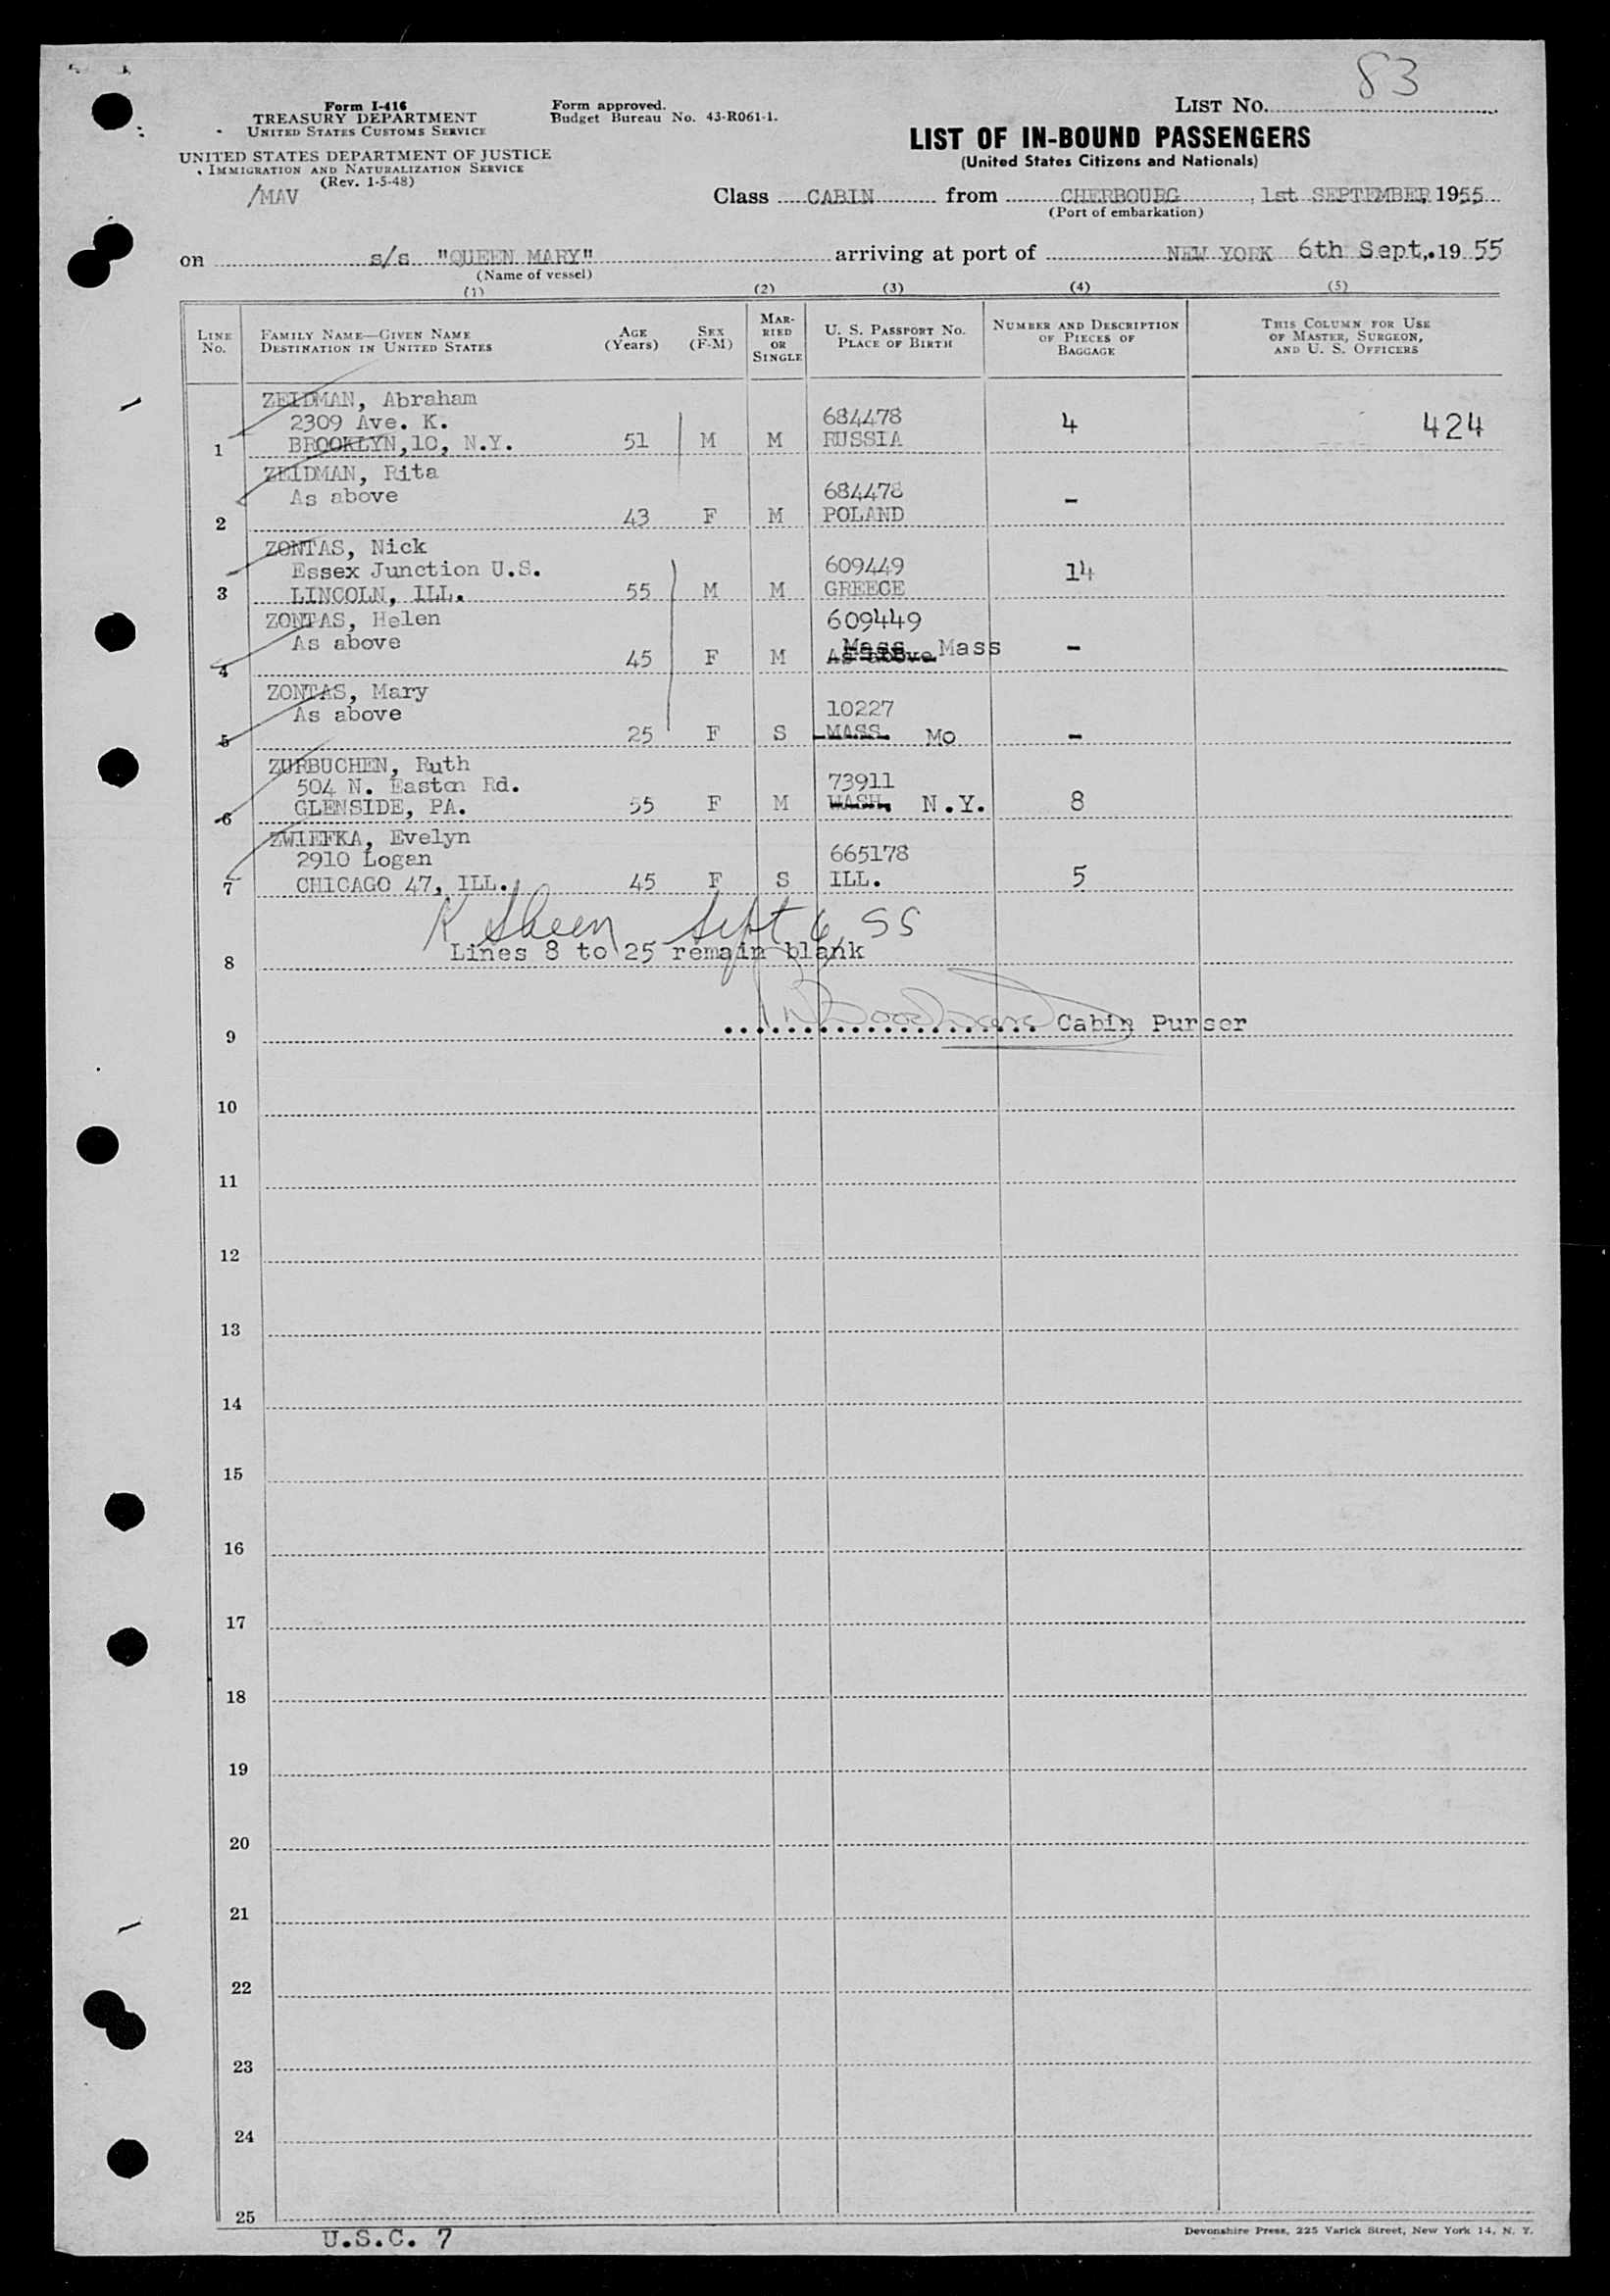 83
Form I-416
TREASURY DEPARTMENT
UNITED STATES CUSTOMS SERVICE
UNITED STATES DEPARTMENT OF JUSTICE
IMMIGRATION AND NATURALIZATION SERVICE
(Rev. 1-5-48)
/MAV
Form approved.
Budget Bureau No. 43-R061-1.
LIST NO.
LIST OF IN-BOUND PASSENGERS
(United States Citizens and Nationals)
Class CABIN from CHERBOURG, 1st SEPTEMBER, 1955
(Port of embarkation)
on s/s "QUEEN MARY" arriving at port of NEW YORK 6th Sept., 19 55
(Name of vessel)
(1) (2) (3) (4) (5)
LINE NO.
FAMILY NAME—GIVEN NAME
DESTINATION IN UNITED STATES
AGE (Years)
SEX (F-M)
MARRIED OR SINGLE
U. S. PASSPORT NO.
PLACE OF BIRTH
NUMBER AND DESCRIPTION OF PIECES OF BAGGAGE
THIS COLUMN FOR USE OF MASTER, SURGEON, AND U. S. OFFICERS
ZEIDMAN, Abraham
2309 Ave. K. 684478 4 424
1 BROOKLYN,10, N.Y. 51 M M RUSSIA
ZEIDMAN, Rita
As above 684478 -
2 43 F M POLAND
ZONTAS, Nick
Essex Junction U.S. 609449 14
3 LINCOLN, ILL. 55 M M GREECE
ZONTAS, Helen 609449
As above Mass Mass -
4 45 F M As above
ZONTAS, Mary
As above 10227
5 25 F S MASS. Mo -
ZURBUCHEN, Ruth
504 N. Easton Rd. 73911
6 GLENSIDE, PA. 55 F M WASH. N.Y. 8
ZWIEFKA, Evelyn
2910 Logan 665178
7 CHICAGO 47, ILL. 45 F S ILL. 5
K Sheen Sept 6, 55
Lines 8 to 25 remain blank
8
9 Cabin Purser
10
11
12
13
14
15
16
17
18
19
20
21
22
23
24
25
U.S.C. 7
Devonshire Press, 225 Varick Street, New York 14, N. Y.